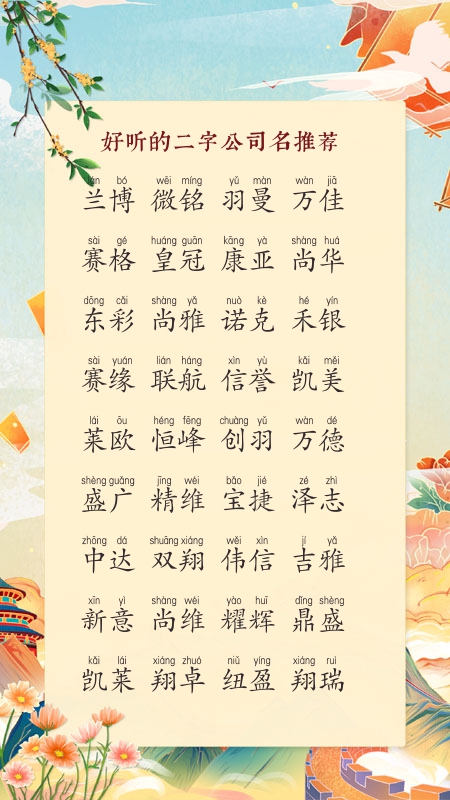 好听的二字公司名推荐
lán bó wēi míng yǔ màn wàn jiā
兰博 微铭 羽曼 万佳
sài gé huáng guān kāng yà shàng huá
赛格 皇冠 康亚 尚华
dōng cǎi shàng yǎ nuò kè hé yín
东彩 尚雅 诺克 禾银
sài yuán lián háng xìn yù kǎi měi
赛缘 联航 信誉 凯美
lái ōu héng fēng chuàng yǔ wàn dé
莱欧 恒峰 创羽 万德
shèng guǎng jīng wéi bǎo jié zé zhì
盛广 精维 宝捷 泽志
zhōng dá shuāng xiáng wěi xìn jí yǎ
中达 双翔 伟信 吉雅
xīn yì shàng wéi yào huī dǐng shèng
新意 尚维 耀辉 鼎盛
kǎi lái xiáng zhuó niǔ yíng xiáng ruì
凯莱 翔卓 纽盈 翔瑞